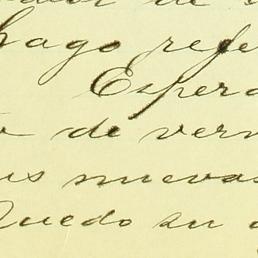 hago refe
Espera
de ver
us nuevas
Quedo su